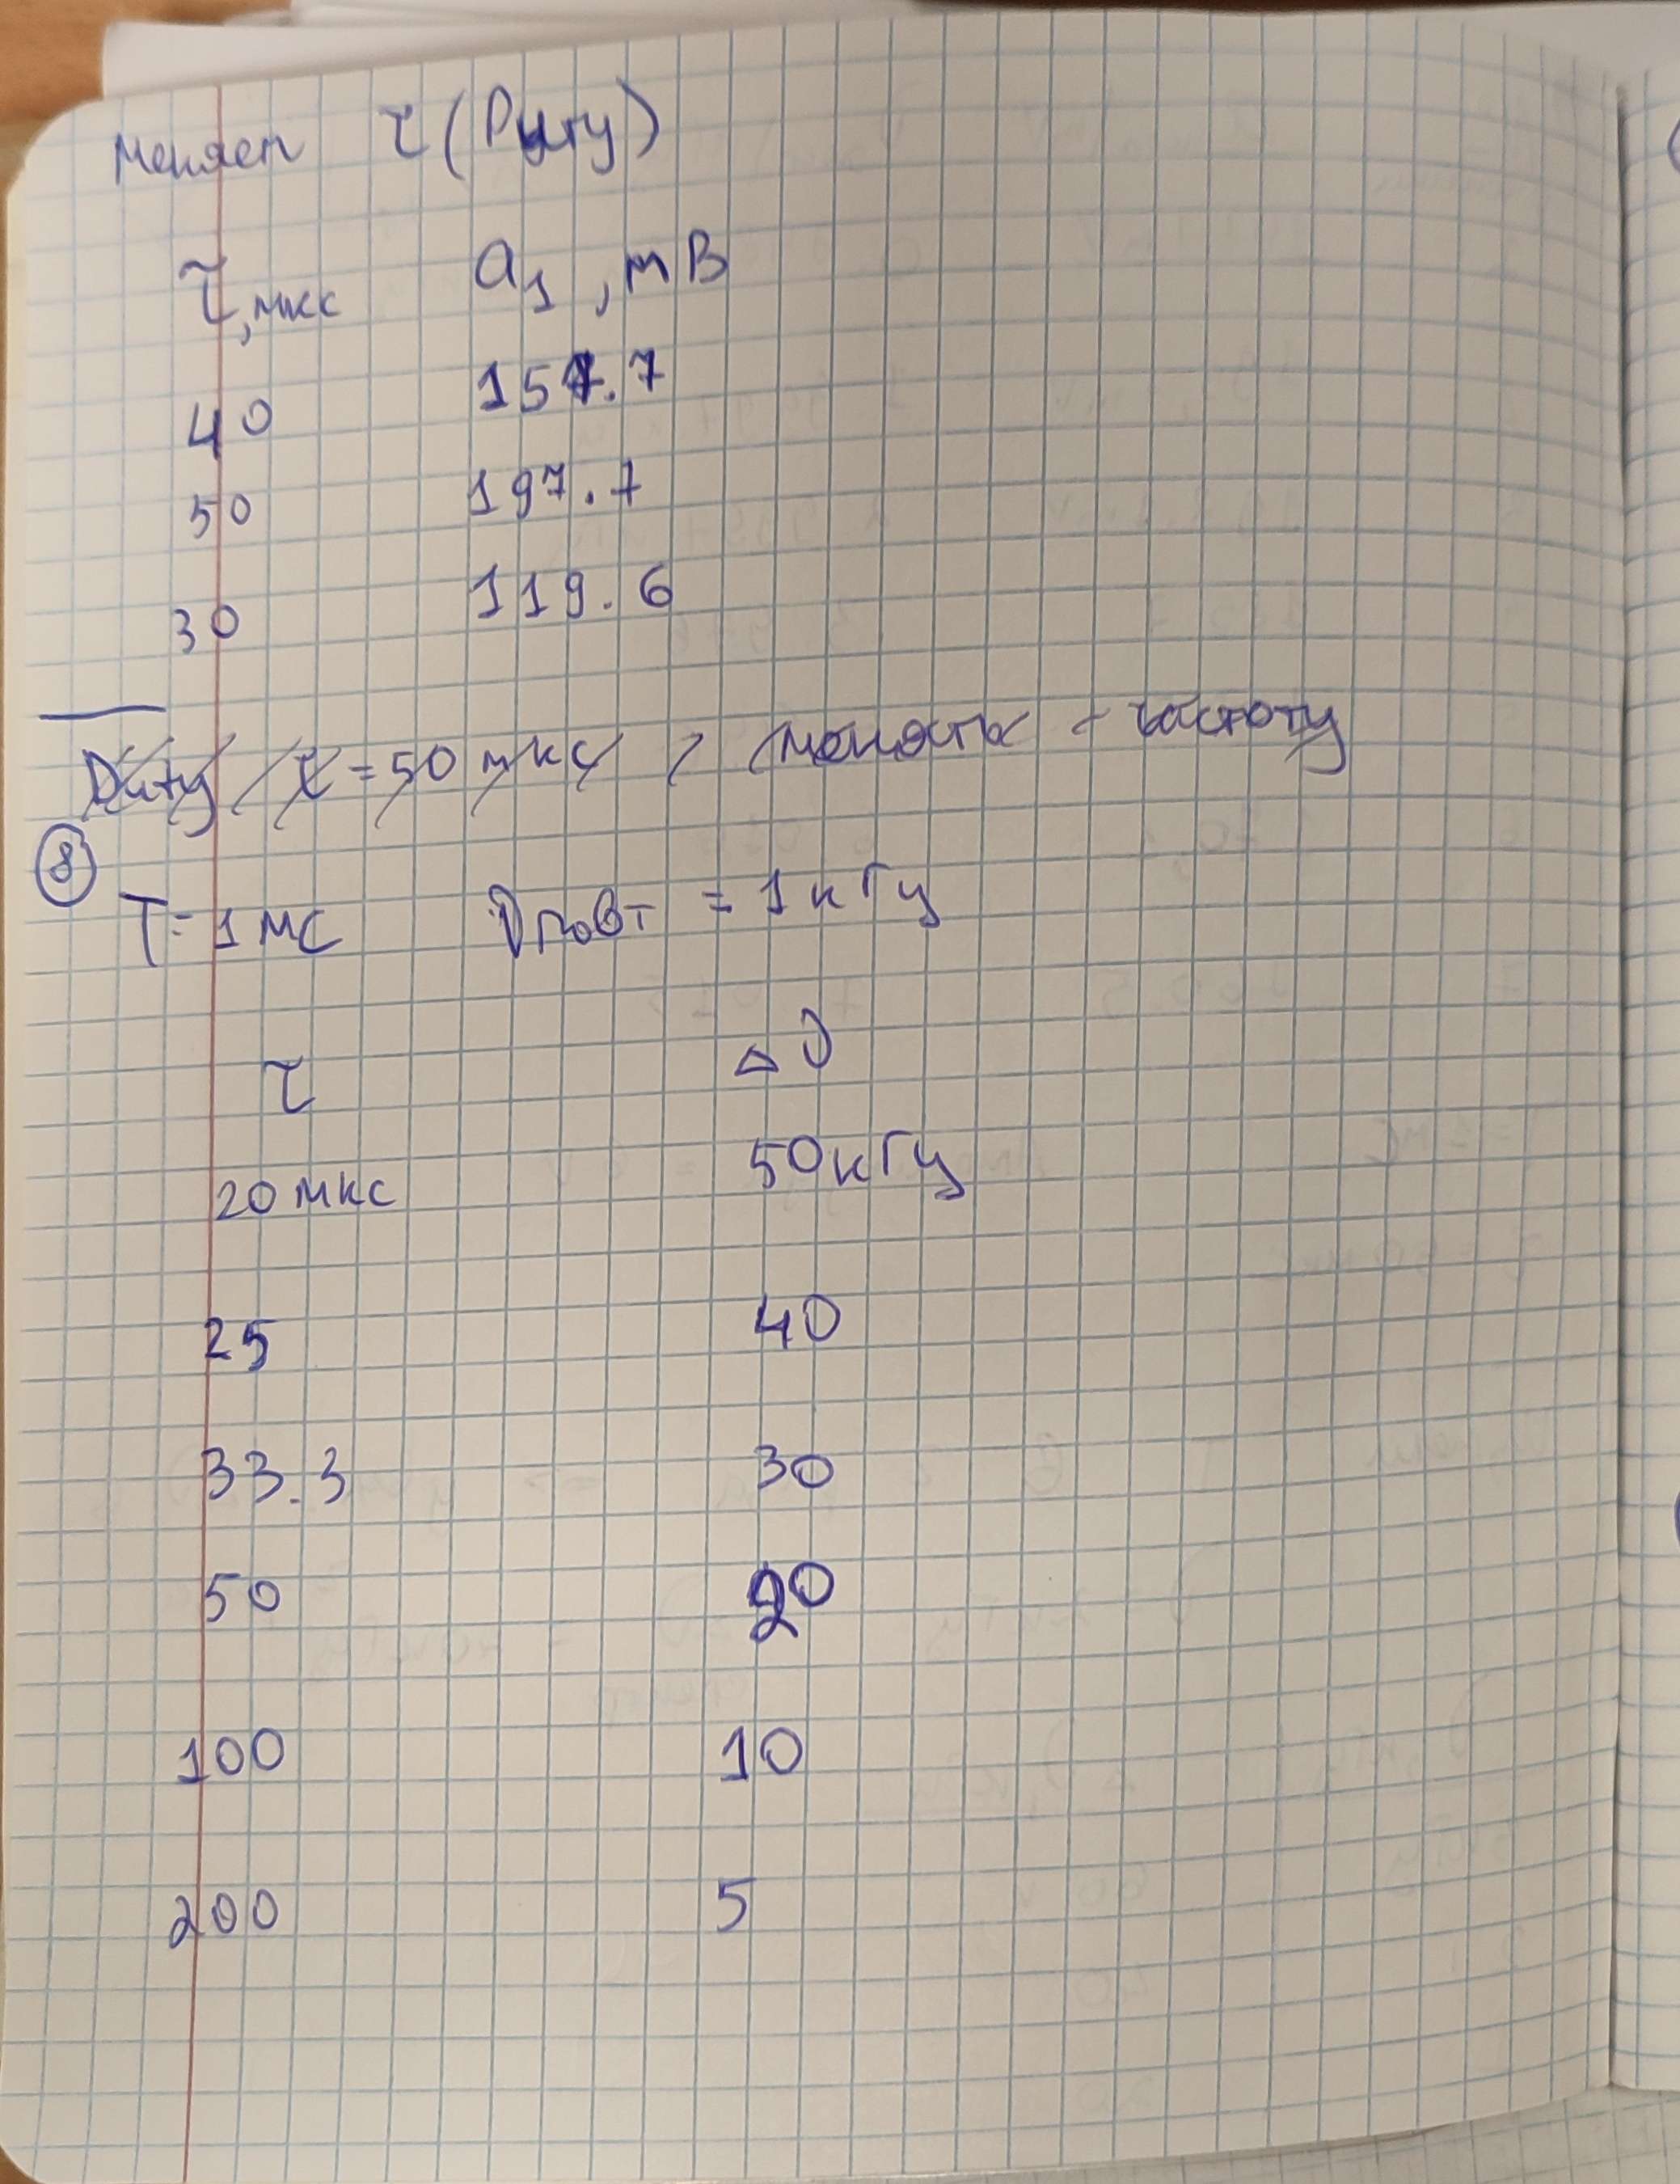 меняем τ (Duty)
τ, мкс a₁, mB
40 157.7
50 197.7
30 119.6
Duty τ = 50 мкс, менять частоту
⑧
T = 1 мс νповт = 1 кГц
τ Δν
20 мкс 50 кГц
25 40
33.3 30
50 20
100 10
200 5